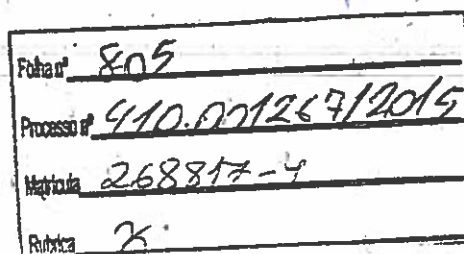 Folha nº 805
Processo nº 410.001267/2015
Matrícula 268817-4
Rubrica